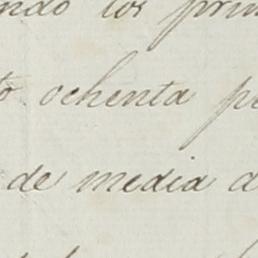 ndo los prim
to ochenta pe
de media a